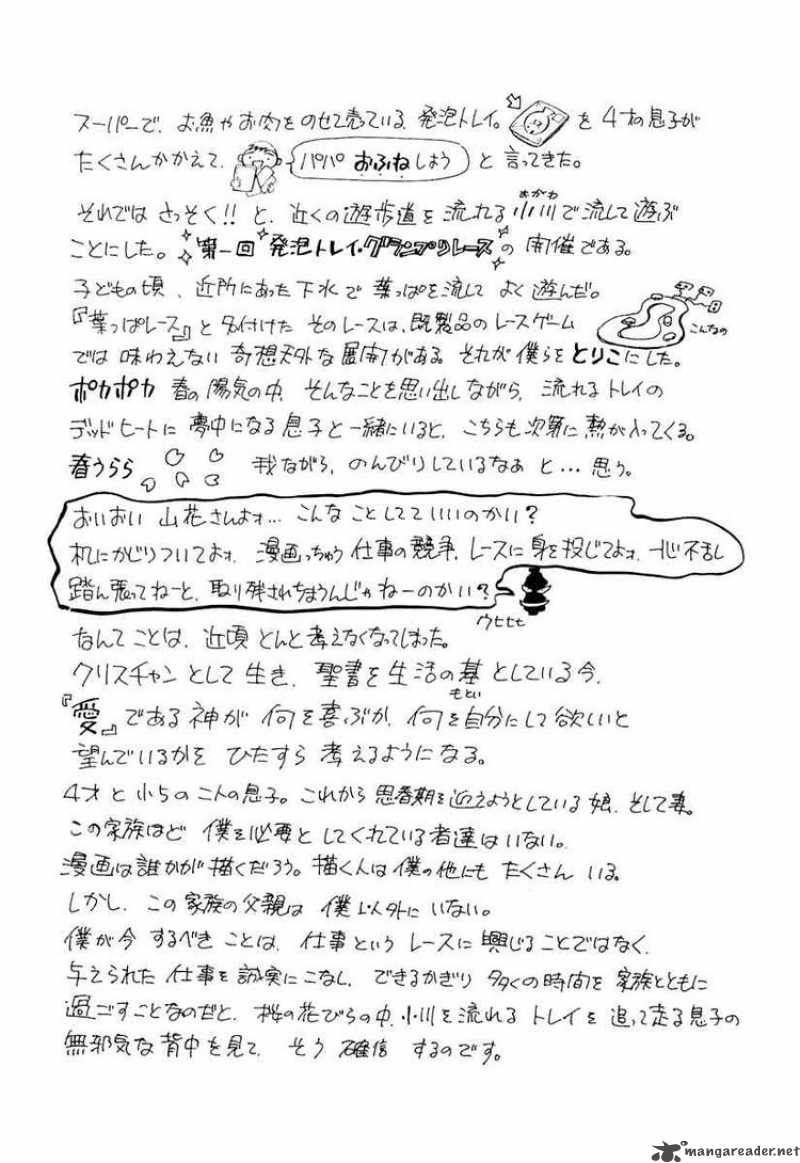 スーパーで、お魚やお肉をのせて売っている、発泡トレイ。を4才の息子が
たくさんかかえて、「パパ おふねしよう」と言ってきた。
それではさっそく!!と、近くの遊歩道を流れる小川(おがわ)で流して遊ぶ
ことにした。第一回 発泡トレイ・グランプリレースの開催である。
子どもの頃、近所にあった下水で葉っぱを流してよく遊んだ。
『葉っぱレース』と名付けたそのレースは、既製品のレースゲーム
こんなの
では味わえない奇想天外な展開がある。それが僕らをとりこにした。
ポカポカ春の陽気の中、そんなことを思い出しながら、流れるトレイの
デッドヒートに夢中になる息子と一緒にいると、こちらも次第に熱が入ってくる。
春うらら 我ながら、のんびりしているなぁと…思う。
おいおい山花さんよォ…こんなことしてていいのかい?
机にかじりついてよォ、漫画っちゅう仕事の競争、レースに身を投じてよォ、一心不乱
踏ん悪ってねーと、取り残されちまうんじゃねーのかい?
ウヒヒヒ
なんてことは、近頃とんと考えなくなってしまった。
クリスチャンとして生き、聖書を生活の基(もとい)としている今、
『愛』である神が何を喜ぶか、何を自分にして欲しいと
望んでいるかをひたすら考えるようになる。
4才と小5の二人の息子。これから思春期を迎えようとしている娘、そして妻。
この家族ほど僕を必要としてくれている者達はいない。
漫画は誰かが描くだろう。描く人は僕の他にもたくさんいる。
しかし、この家族の父親は僕以外にいない。
僕が今するべきことは、仕事というレースに興じることではなく、
与えられた仕事を誠実にこなし、できるかぎり多くの時間を家族とともに
過ごすことなのだと、桜の花びらの中、小川を流れるトレイを追って走る息子の
無邪気な背中を見て、そう確信するのです。
mangareader.net